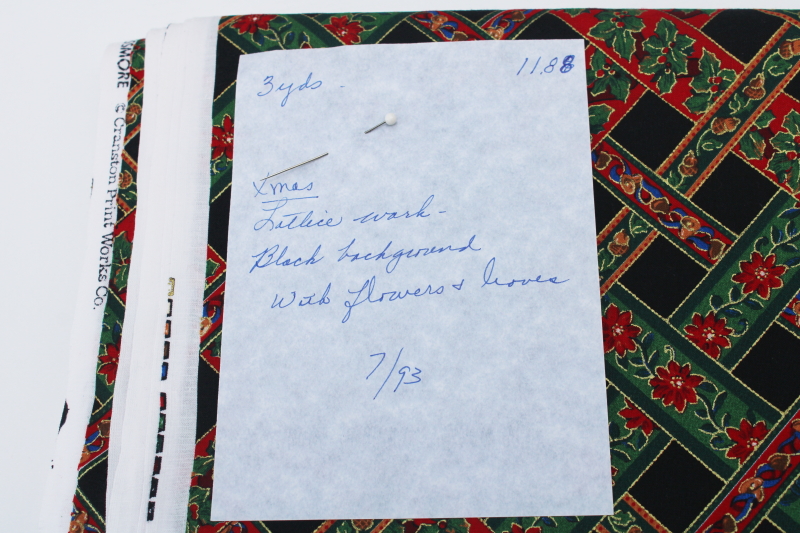 3 yds. 11.88
Xmas
Lattice work-
Black background
With flowers & leaves
7/93
MORE © Cranston Print Works Co.